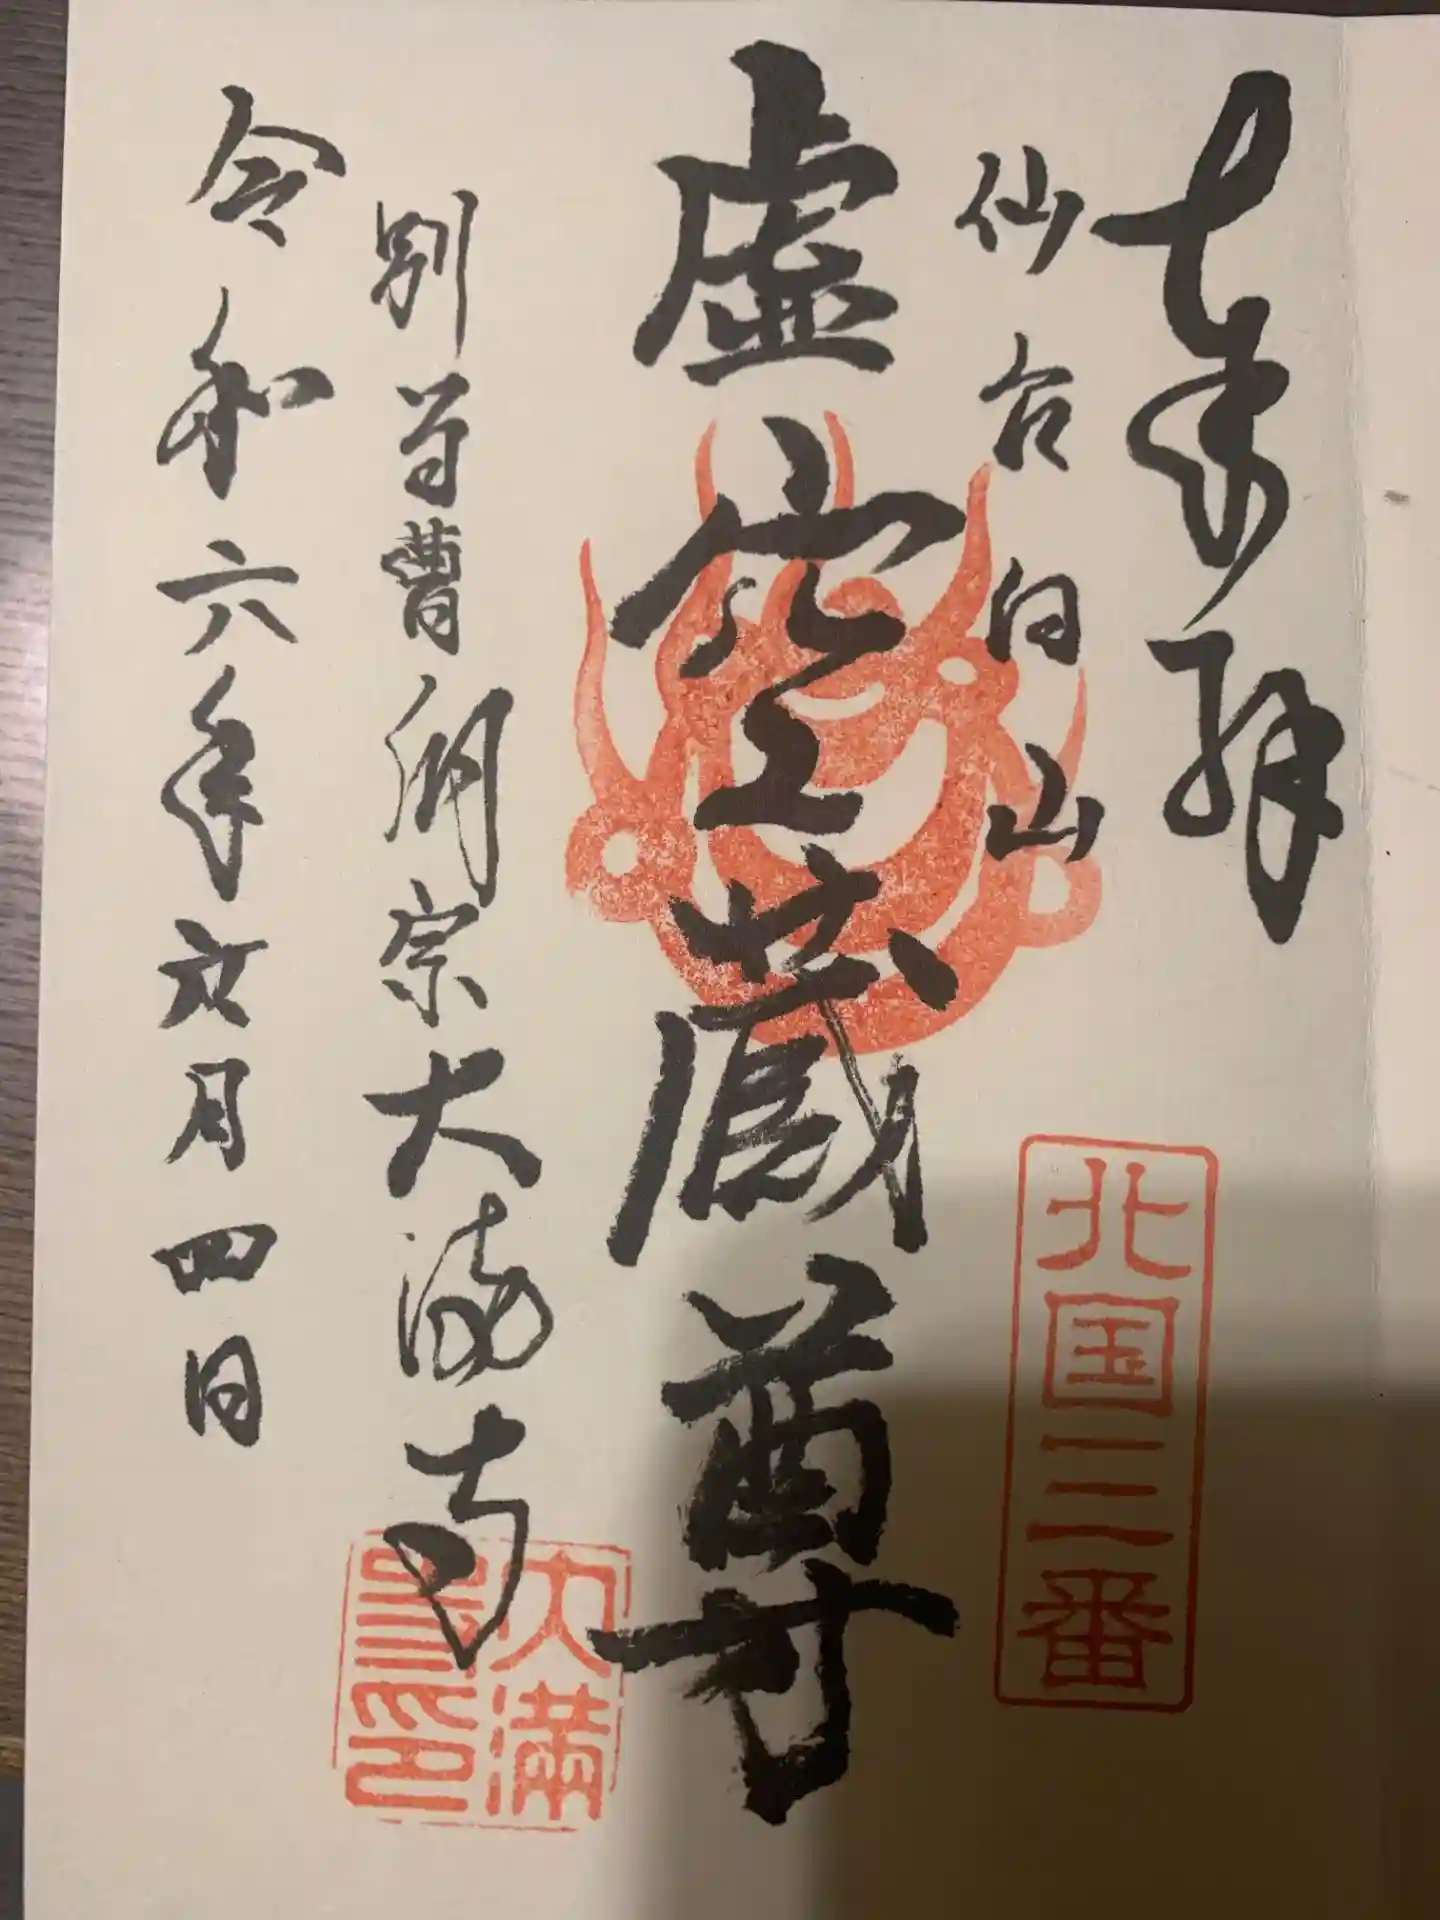 奉拝
仙台向山
北国三番
虚空蔵尊
別当曹洞宗大満寺
大満寺印
令和六年文月四日